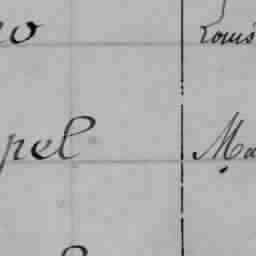 o Louis
pel Ma